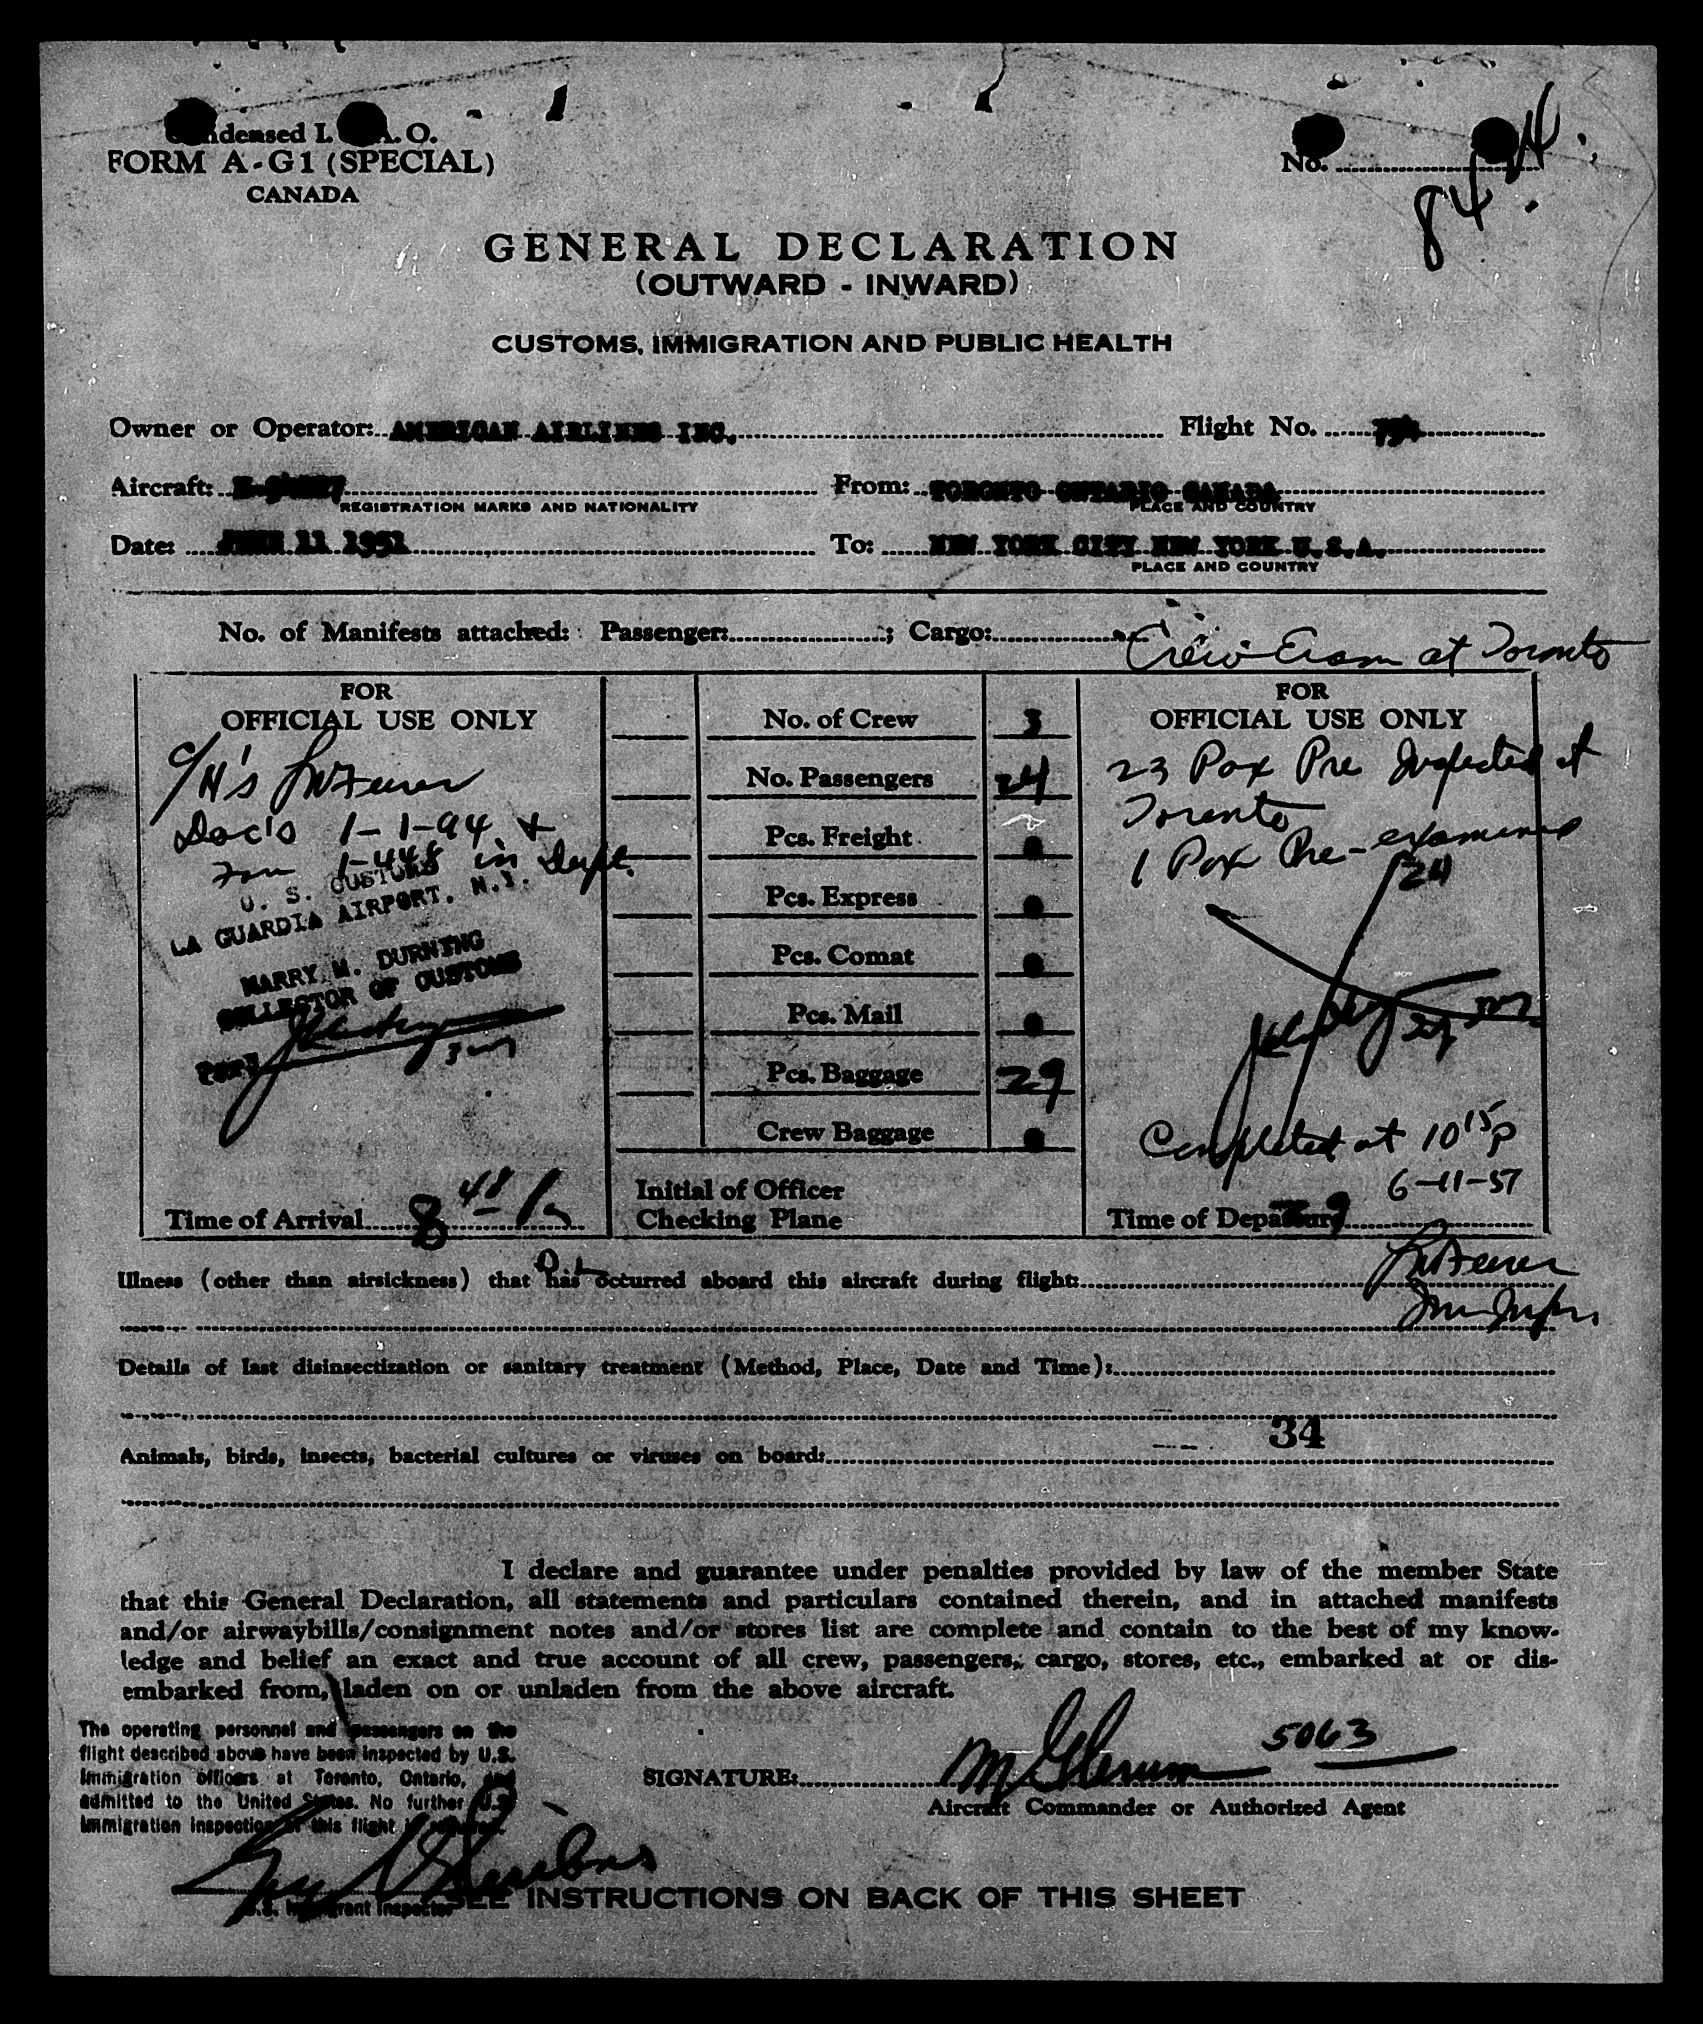 Condensed I. A. O.
FORM A-G1 (SPECIAL)
CANADA
No.
84
GENERAL DECLARATION
(OUTWARD - INWARD)
CUSTOMS, IMMIGRATION AND PUBLIC HEALTH
Owner or Operator: AMERICAN AIRLINES INC. Flight No.
Aircraft: From: TORONTO ONTARIO CANADA
REGISTRATION MARKS AND NATIONALITY PLACE AND COUNTRY
Date: JUNE 11 1951 To: NEW YORK CITY NEW YORK U.S.A.
PLACE AND COUNTRY
No. of Manifests attached: Passenger: ; Cargo:
Crew Exam at Toronto
FOR
OFFICIAL USE ONLY
C/H's
Doc's 1-1-94 &
1-448 in Dept.
U. S. CUSTOMS
LA GUARDIA AIRPORT, N.Y.
HARRY M. DURNING
COLLECTOR OF CUSTOMS
Per
Time of Arrival 8 48
No. of Crew 3
No. Passengers 24
Pcs. Freight
Pcs. Express
Pcs. Comat
Pcs. Mail
Pcs. Baggage 29
Crew Baggage
Initial of Officer
Checking Plane
FOR
OFFICIAL USE ONLY
23 Pax Pre Inspected at
Toronto
1 Pax Pre-examined
24
Completed at 10 15 P
6-11-51
Time of Departure
Illness (other than airsickness) that has occurred aboard this aircraft during flight:
Imm Inspr.
Details of last disinsectization or sanitary treatment (Method, Place, Date and Time):
34
Animals, birds, insects, bacterial cultures or viruses on board:
I declare and guarantee under penalties provided by law of the member State
that this General Declaration, all statements and particulars contained therein, and in attached manifests
and/or airwaybills/consignment notes and/or stores list are complete and contain to the best of my know-
ledge and belief an exact and true account of all crew, passengers, cargo, stores, etc., embarked at or dis-
embarked from, laden on or unladen from the above aircraft.
The operating personnel and passengers on the
flight described above have been inspected by U.S.
Immigration officers at Toronto, Ontario, and
admitted to the United States. No further U.S.
Immigration inspection of this flight is required.
U.S. Immigrant Inspector
SIGNATURE: M 5063
Aircraft Commander or Authorized Agent
SEE INSTRUCTIONS ON BACK OF THIS SHEET